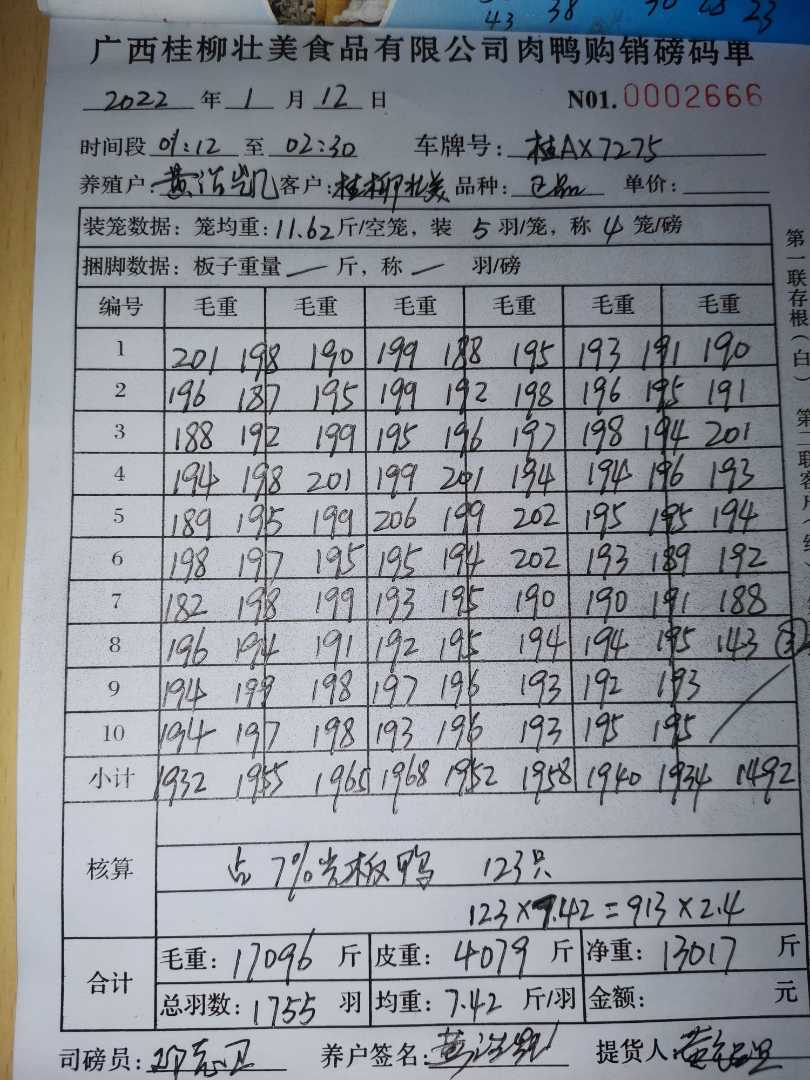 43 38 30 28 23
广西桂柳壮美食品有限公司肉鸭购销磅码单
2022 年 1 月 12 日 N01. 0002666
时间段 01:12 至 02:30 车牌号: 桂AX7275
养殖户: 黄浩凯 客户: 桂柳壮美 品种: 正品 单价:
装笼数据: 笼均重: 11.62 斤/空笼, 装 5 羽/笼, 称 4 笼/磅
捆脚数据: 板子重量 — 斤, 称 — 羽/磅
编号 毛重 毛重 毛重 毛重 毛重 毛重
1 201 198 190 199 188 195 193 191 190
2 196 187 195 199 192 198 196 195 191
3 188 192 199 195 196 197 198 194 201
4 194 198 201 199 201 194 194 196 193
5 189 195 199 206 199 202 195 195 194
6 198 197 195 195 194 202 193 189 192
7 182 198 199 193 195 190 190 191 188
8 196 194 191 192 195 194 194 195 143 ③
9 194 199 198 197 196 193 192 193
10 194 197 198 193 196 193 195 195
小计 1932 1955 1965 1968 1952 1958 1940 1934 1492
核算 占 7% 光板鸭 123只
123×7.42=913×2.4
合计 毛重: 17096 斤 皮重: 4079 斤 净重: 13017 斤
总羽数: 1755 羽 均重: 7.42 斤/羽 金额: 元
司磅员: 养户签名: 黄浩凯 提货人:
第一联存根(白) 第二联客户